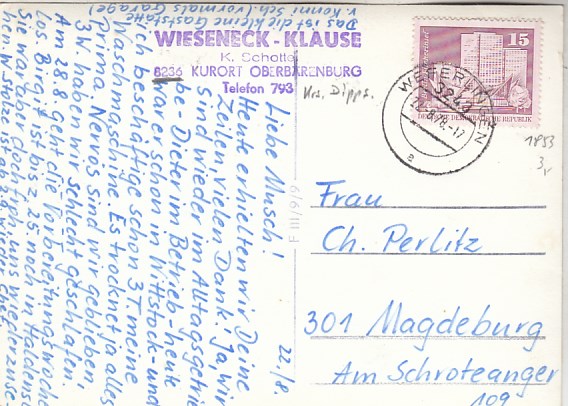 Das ist die kleine Gaststätte
v. Konni Sch. (vormals Garage)
WIESENECK - KLAUSE
K. Schotte
8236 KURORT OBERBÄRENBURG
Telefon 793
Krs. Dipps.
22/8.
Liebe Musch!
Heute erhielten wir Deine
Zeilen. Vielen Dank! Ja, wir
sind wieder im Alltagsgetrie-
be - Dieter im Betrieb - heute
war er schon in Wittstock - und
ich beschäftige schon 3 T. meine
Waschmaschine. Es trocknet ja alles
prima. Nervös sind wir geblieben,
3 N. haben wir schlecht geschlafen.
Am 28.8. geht die Vorbereitungswoche
los. Birgit ist bis 25. noch in Haldensl.
Sie war aber doch froh, uns wiederzuse-
hen. W. Stolze ist ab 28. wieder
F III/9/9
15
DEUTSCHE DEMOKRATISCHE REPUBLIK
WEFERLINGEN
3242
.8.78.-17
a
1853
3,-
Frau
Ch. Perlitz
301 Magdeburg
Am Schroteanger
109